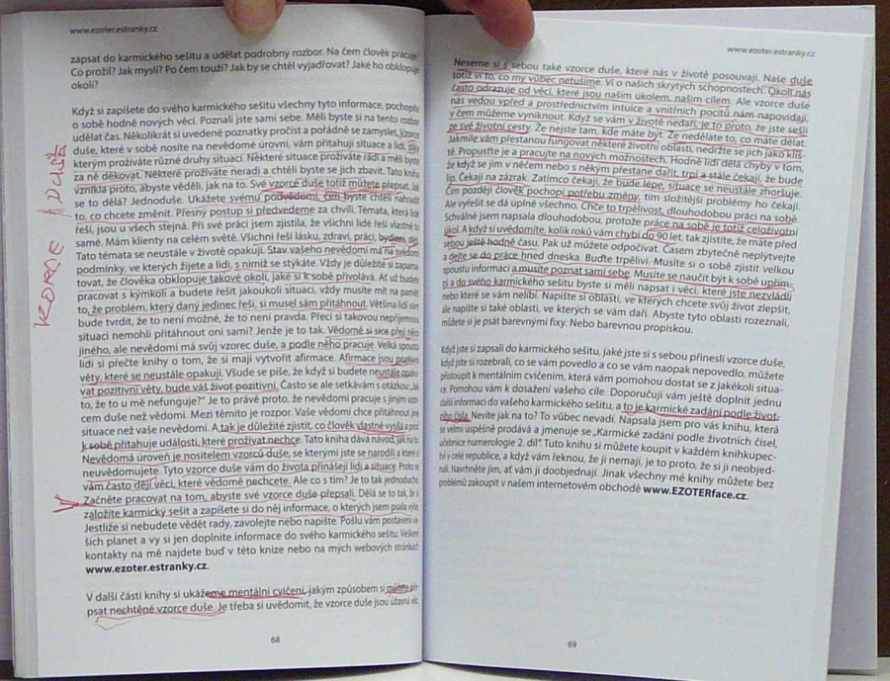 www.ezoter.estranky.cz
zapsat do karmického sešitu a udělat podrobný rozbor. Na čem člověk pracuje?
Co prožil? Jak myslí? Po čem touží? Jak by se chtěl vyjadřovat? Jaké ho obklopuje
okolí?
Když si zapíšete do svého karmického sešitu všechny tyto informace, pochopíte
o sobě hodně nových věcí. Poznali jste sami sebe. Měli byste si na tento rozbor
udělat čas. Několikrát si uvedené poznatky pročíst a pořádně se zamyslet,
duše, které v sobě nosíte na nevědomé úrovni, vám přitahují situace a lidi,
kterým prožíváte různé druhy situací. Některé situace prožíváte rádi a měli byste
za ně děkovat. Některé prožíváte neradi a chtěli byste se jich zbavit. Tato kniha
vznikla proto, abyste věděli, jak na to. Své vzorce duše totiž můžete přepsat. Jak
se to dělá? Jednoduše. Ukážete svému podvědomí, čím byste chtěli nahradit
to, co chcete změnit. Přesný postup si předvedeme za chvíli. Témata, která lidi
řeší, jsou u všech stejná. Při své práci jsem zjistila, že všichni lidé řeší vlastně to
samé. Mám klienty na celém světě. Všichni řeší lásku, zdraví, práci, bydlení,
Tato témata se neustále v životě opakují. Stav vašeho nevědomí má na svědomí
podmínky, ve kterých žijete a lidi, s nimiž se stýkáte. Vždy je důležité si zapama-
tovat, že člověka obklopuje takové okolí, jaké si k sobě přivolá. Ať už budete
pracovat s kýmkoli a budete řešit jakoukoli situaci, vždy musíte mít na paměti
to, že problém, který daný jedinec řeší, si musel sám přitáhnout. Většina lidí
bude tvrdit, že to není možné, že to není pravda. Přeci si takovou nepříjemnou
situaci nemohli přitáhnout oni sami? Jenže je to tak. Vědomě si sice přejí něco
jiného, ale nevědomí má svůj vzorec duše, a podle něho pracuje. Velká spousta
lidí si přečte knihy o tom, že si mají vytvořit afirmace. Afirmace jsou pozitivní
věty, které se neustále opakují. Všude se píše, že když si budete neustále opako-
vat pozitivní věty, bude váš život pozitivní. Často se ale setkávám s otázkou: „Jak
to, že to u mě nefunguje?" Je to právě proto, že nevědomí pracuje s jiným vzor-
cem duše než vědomí. Mezi těmito je rozpor. Vaše vědomí chce přitáhnout jiné
situace než vaše nevědomí. A tak je důležité zjistit, co člověk vlastně vysílá a proč
k sobě přitahuje události, které prožívat nechce. Tato kniha dává návod, jak na to.
Nevědomá úroveň je nositelem vzorců duše, se kterými jste se narodili a které si
neuvědomujete. Tyto vzorce duše vám do života přinášejí lidi a situace. Proto se
vám často dějí věci, které vědomě nechcete. Ale co s tím? Je to tak jednoduché.
Začněte pracovat na tom, abyste své vzorce duše přepsali. Dělá se to tak, že si
založíte karmický sešit a zapíšete si do něj informace, o kterých jsem psala výše.
Jestliže si nebudete vědět rady, zavolejte nebo napište. Pošlu vám postavení va-
šich planet a vy si jen doplníte informace do svého karmického sešitu. Veškeré
kontakty na mě najdete buď v této knize nebo na mých webových stránkách
www.ezoter.estranky.cz.
V další části knihy si ukážeme mentální cvičení, jakým způsobem si můžete pře-
psat nechtěné vzorce duše. Je třeba si uvědomit, že vzorce duše jsou úžasná věc.
68
VZORCE DUŠE
www.ezoter.estranky.cz
Neseme si s sebou také vzorce duše, které nás v životě posouvají. Naše duše
totiž ví to, co my vůbec netušíme. Ví o našich skrytých schopnostech. Okolí nás
často odrazuje od věcí, které jsou našim úkolem, našim cílem. Ale vzorce duše
nás vedou vpřed a prostřednictvím intuice a vnitřních pocitů nám napovídají,
v čem můžeme vyniknout. Když se vám v životě nedaří, je to proto, že jste sešli
ze své životní cesty. Že nejste tam, kde máte být. Že neděláte to, co máte dělat.
Jakmile vám přestanou fungovat některé životní oblasti, nedržte se jich jako klíš-
tě. Propusťte je a pracujte na nových možnostech. Hodně lidí dělá chyby v tom,
že když se jim v něčem nebo s někým přestane dařit, trpí a stále čekají, že bude
líp. Čekají na zázrak. Zatímco čekají, že bude lépe, situace se neustále zhoršuje.
Čím později člověk pochopí potřebu změny, tím složitější problémy ho čekají.
Ale vyřešit se dá úplně všechno. Chce to trpělivost, dlouhodobou práci na sobě.
Schválně jsem napsala dlouhodobou, protože práce na sobě je totiž celoživotní
úkol. A když si uvědomíte, kolik roků vám chybí do 90 let, tak zjistíte, že máte před
sebou ještě hodně času. Pak už můžete odpočívat. Časem zbytečně neplýtvejte
a dejte se do práce hned dneska. Buďte trpěliví. Musíte si o sobě zjistit velkou
spoustu informací a musíte poznat sami sebe. Musíte se naučit být k sobě upřím-
ní a do svého karmického sešitu byste si měli napsat i věci, které jste nezvládli
nebo které se vám nelíbí. Napište si oblasti, ve kterých chcete svůj život zlepšit,
ale napište si také oblasti, ve kterých se vám daří. Abyste tyto oblasti rozeznali,
můžete si je psát barevnými fixy. Nebo barevnou propiskou.
Když jste si zapsali do karmického sešitu, jaké jste si s sebou přinesli vzorce duše,
když jste si rozebrali, co se vám povedlo a co se vám naopak nepovedlo, můžete
přistoupit k mentálním cvičením, která vám pomohou dostat se z jakékoli situa-
ce. Pomohou vám k dosažení vašeho cíle. Doporučuji vám ještě doplnit jednu
další informaci do vašeho karmického sešitu, a to je karmické zadání podle život-
ního čísla. Nevíte jak na to? To vůbec nevadí. Napsala jsem pro vás knihu, která
se velmi úspěšně prodává a jmenuje se „Karmické zadání podle životních čísel,
učebnice numerologie 2. díl". Tuto knihu si můžete koupit v každém knihkupec-
tví v celé republice, a když vám řeknou, že ji nemají, je to proto, že si ji neobjed-
nali. Navrhněte jim, ať vám ji doobjednají. Jinak všechny mé knihy můžete bez
problémů zakoupit v našem internetovém obchodě www.EZOTERface.cz.
69